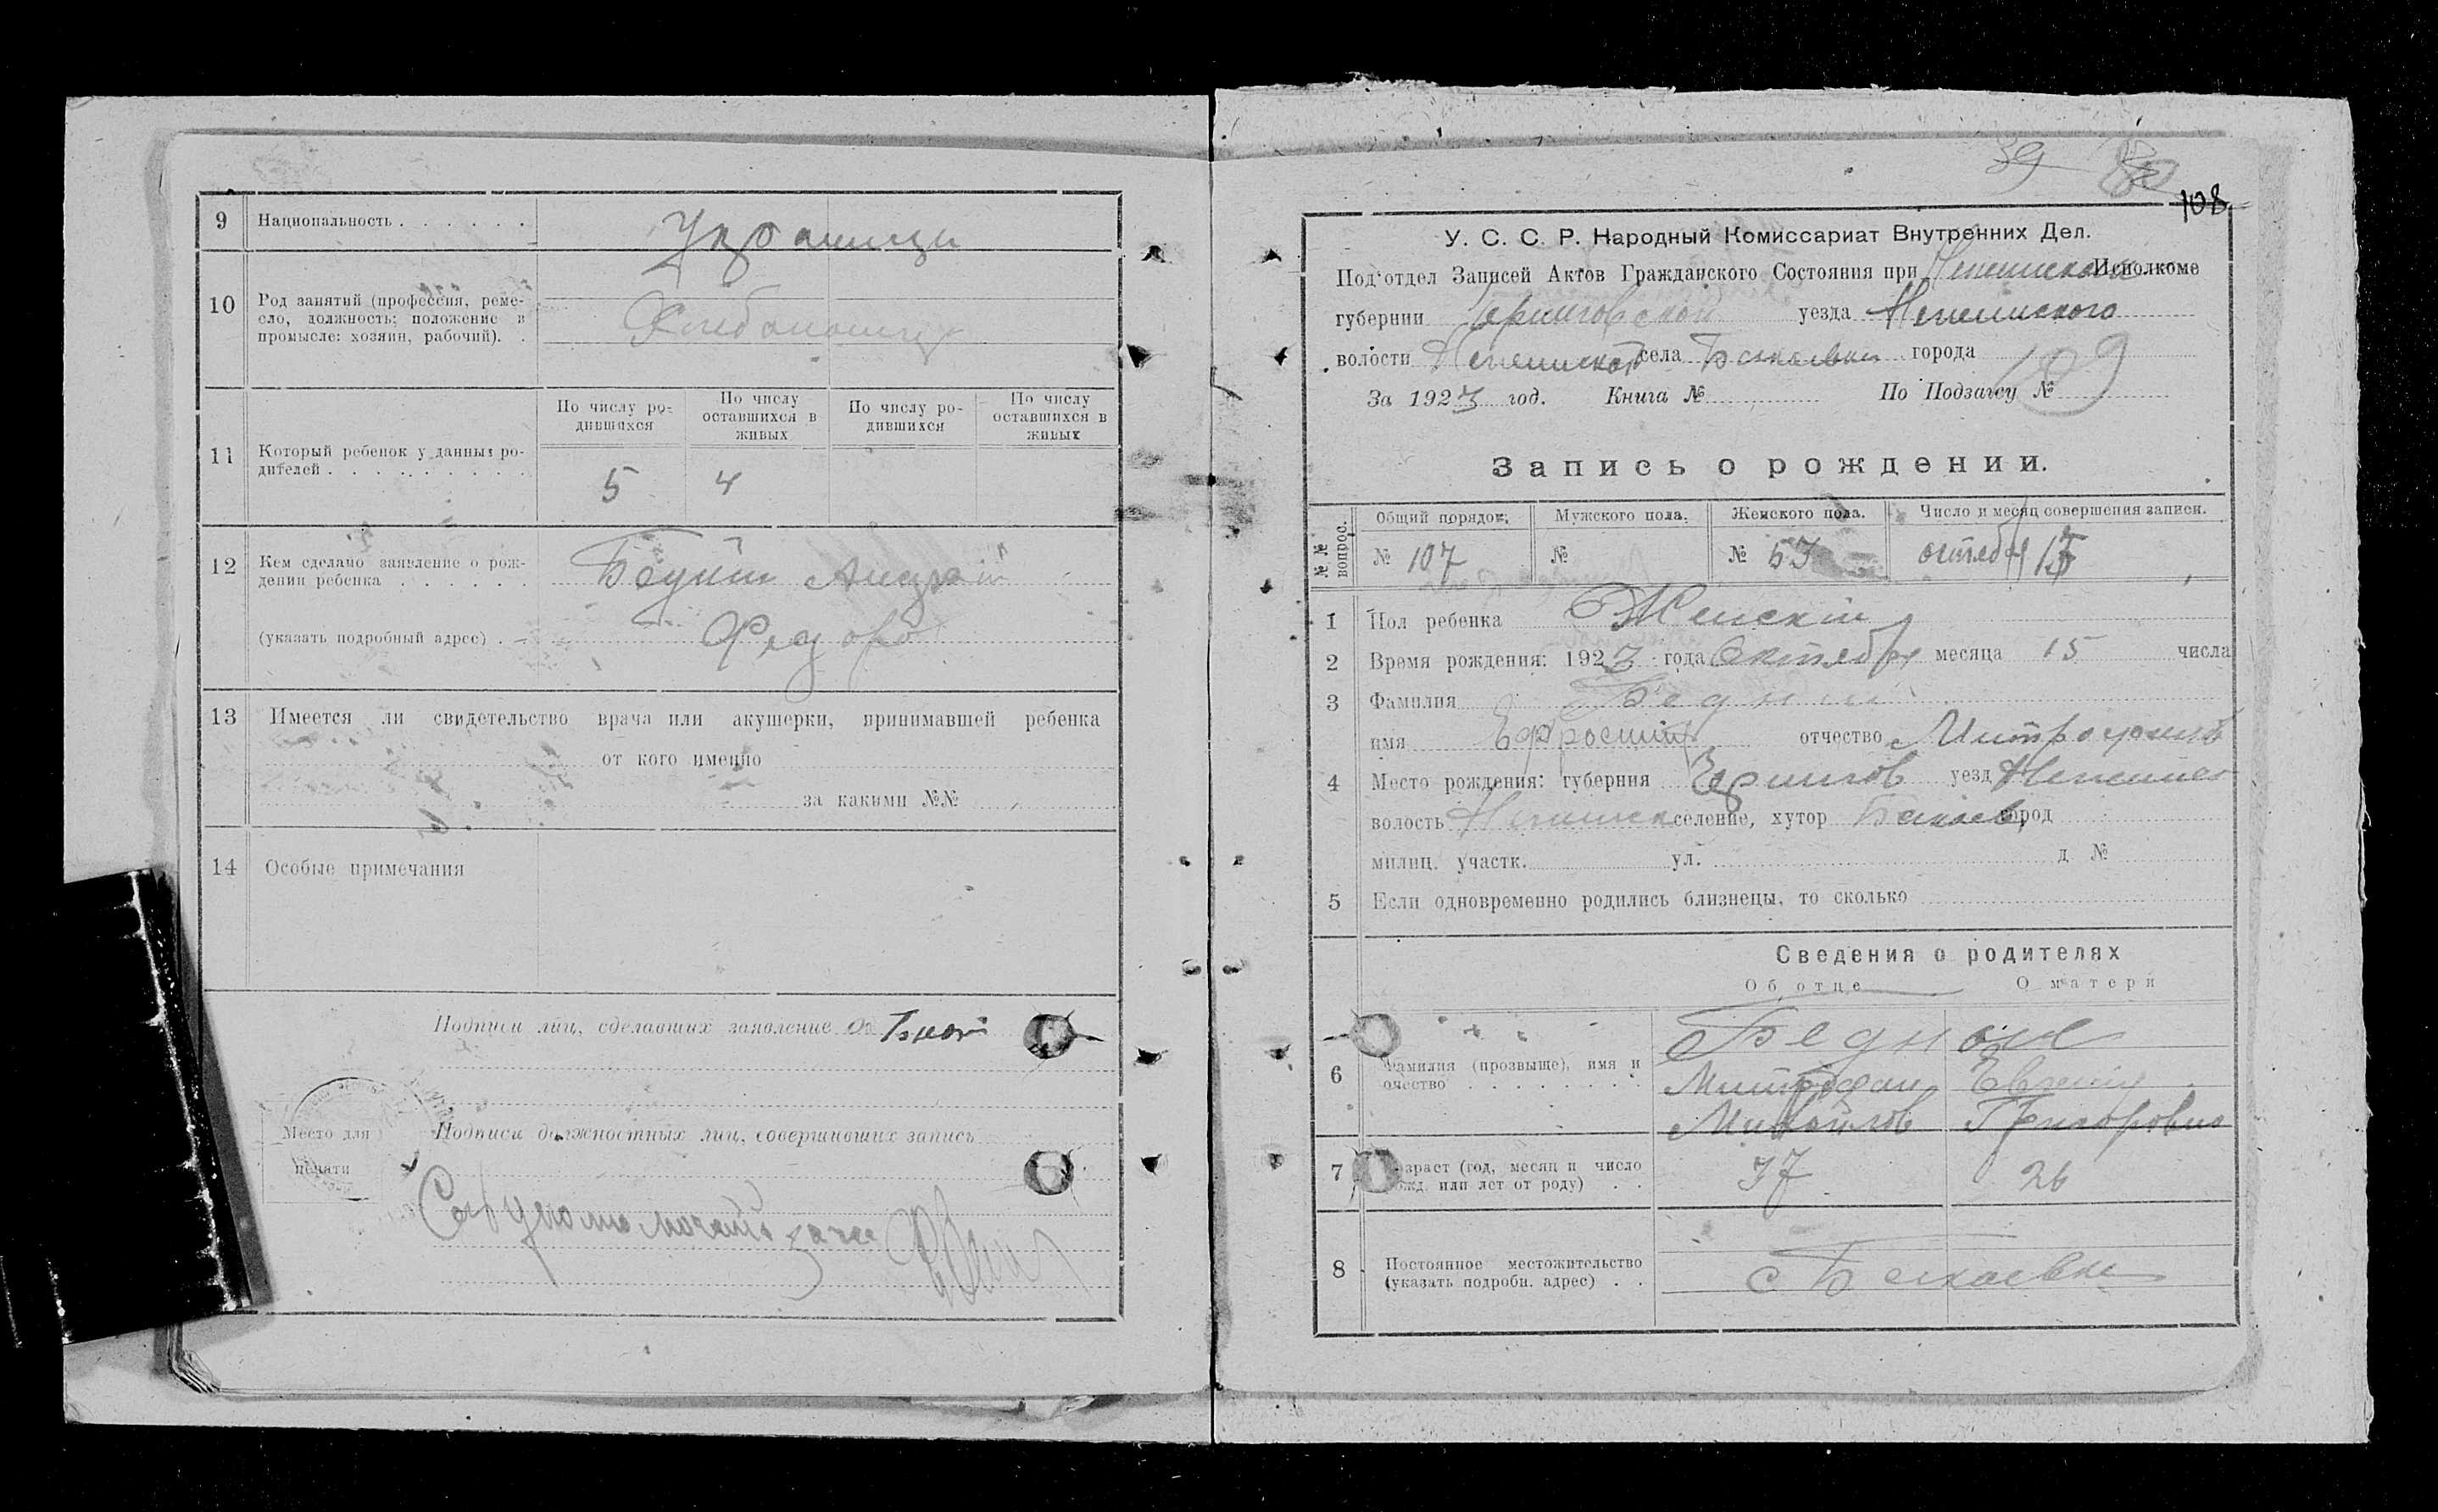 9 Национальность . . . . . . Украинцы
10 Род занятий (профессия, реме-
сло, должность; положение в
промысле: хозяин, рабочий). .
Хлебопашцы
По числу ро-
дившихся
По числу
оставшихся в
живых
По числу ро-
дившихся
По числу
оставшихся в
живых
11 Который ребенок у данных ро-
дителей . . . . . . . . .
5 4
12 Кем сделано заявление о рож-
дении ребенка . . . . . .
Бедний Андрей
(указать подробный адрес) . Федоров
13 Имеется ли свидетельство врача или акушерки, принимавшей ребенка
от кого именно
за какими №№
14 Особые примечания
Подписи лиц, сделавших заявление
Подписи должностных лиц, совершивших запись
Место для
печати
39
108
У. С. С. Р. Народный Комиссариат Внутренних Дел.
Под'отдел Записей Актов Гражданского Состояния при Исполкоме
губернии Черниговской уезда Неженского
волости Неженской села города
За 1923 год. Книга № По Подзагсу № 109
Запись о рождении.
№№ вопрос.
Общий порядок.
Мужского пола.
Женского пола.
Число и месяц совершения записи.
№ 107 № № 53 октября 15
1 Пол ребенка Женский
2 Время рождения: 1923 года Октября месяца 15 числа
3 Фамилия Бедний
имя Ефросиния отчество Митрофанов
4 Место рождения: губерния Чернигов уезд Неженск
волость Неженск селение, хутор город
милиц. участк. ул. д №
5 Если одновременно родились близнецы, то сколько
Сведения о родителях
Об отце О матери
6 Фамилия (прозвище), имя и
очество . . . . . . . .
Бедные
Митрофан Евгения
Михайлов Григоровна
7 Возраст (год, месяц и число
рожд. или лет от роду) . .
37 26
8 Постоянное местожительство
(указать подробн. адрес) . .